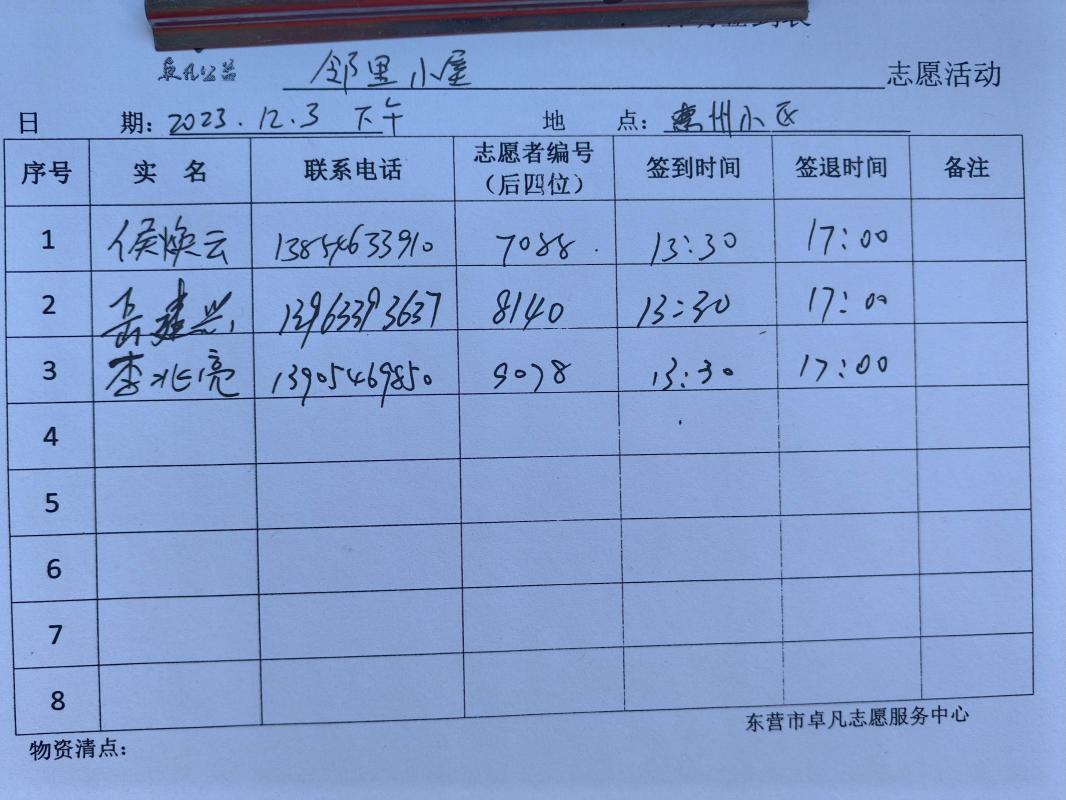 卓凡公益 邻里小屋 志愿活动
日 期：2023.12.3 下午 地 点：惠州小区
序号 实 名 联系电话 志愿者编号（后四位） 签到时间 签退时间 备注
1 侯焕云 13854633910 7088 13:30 17:00
2 岳建兴 13963393637 8140 13:30 17:00
3 李兆亮 13905469850 9078 13:30 17:00
4
5
6
7
8
东营市卓凡志愿服务中心
物资清点：